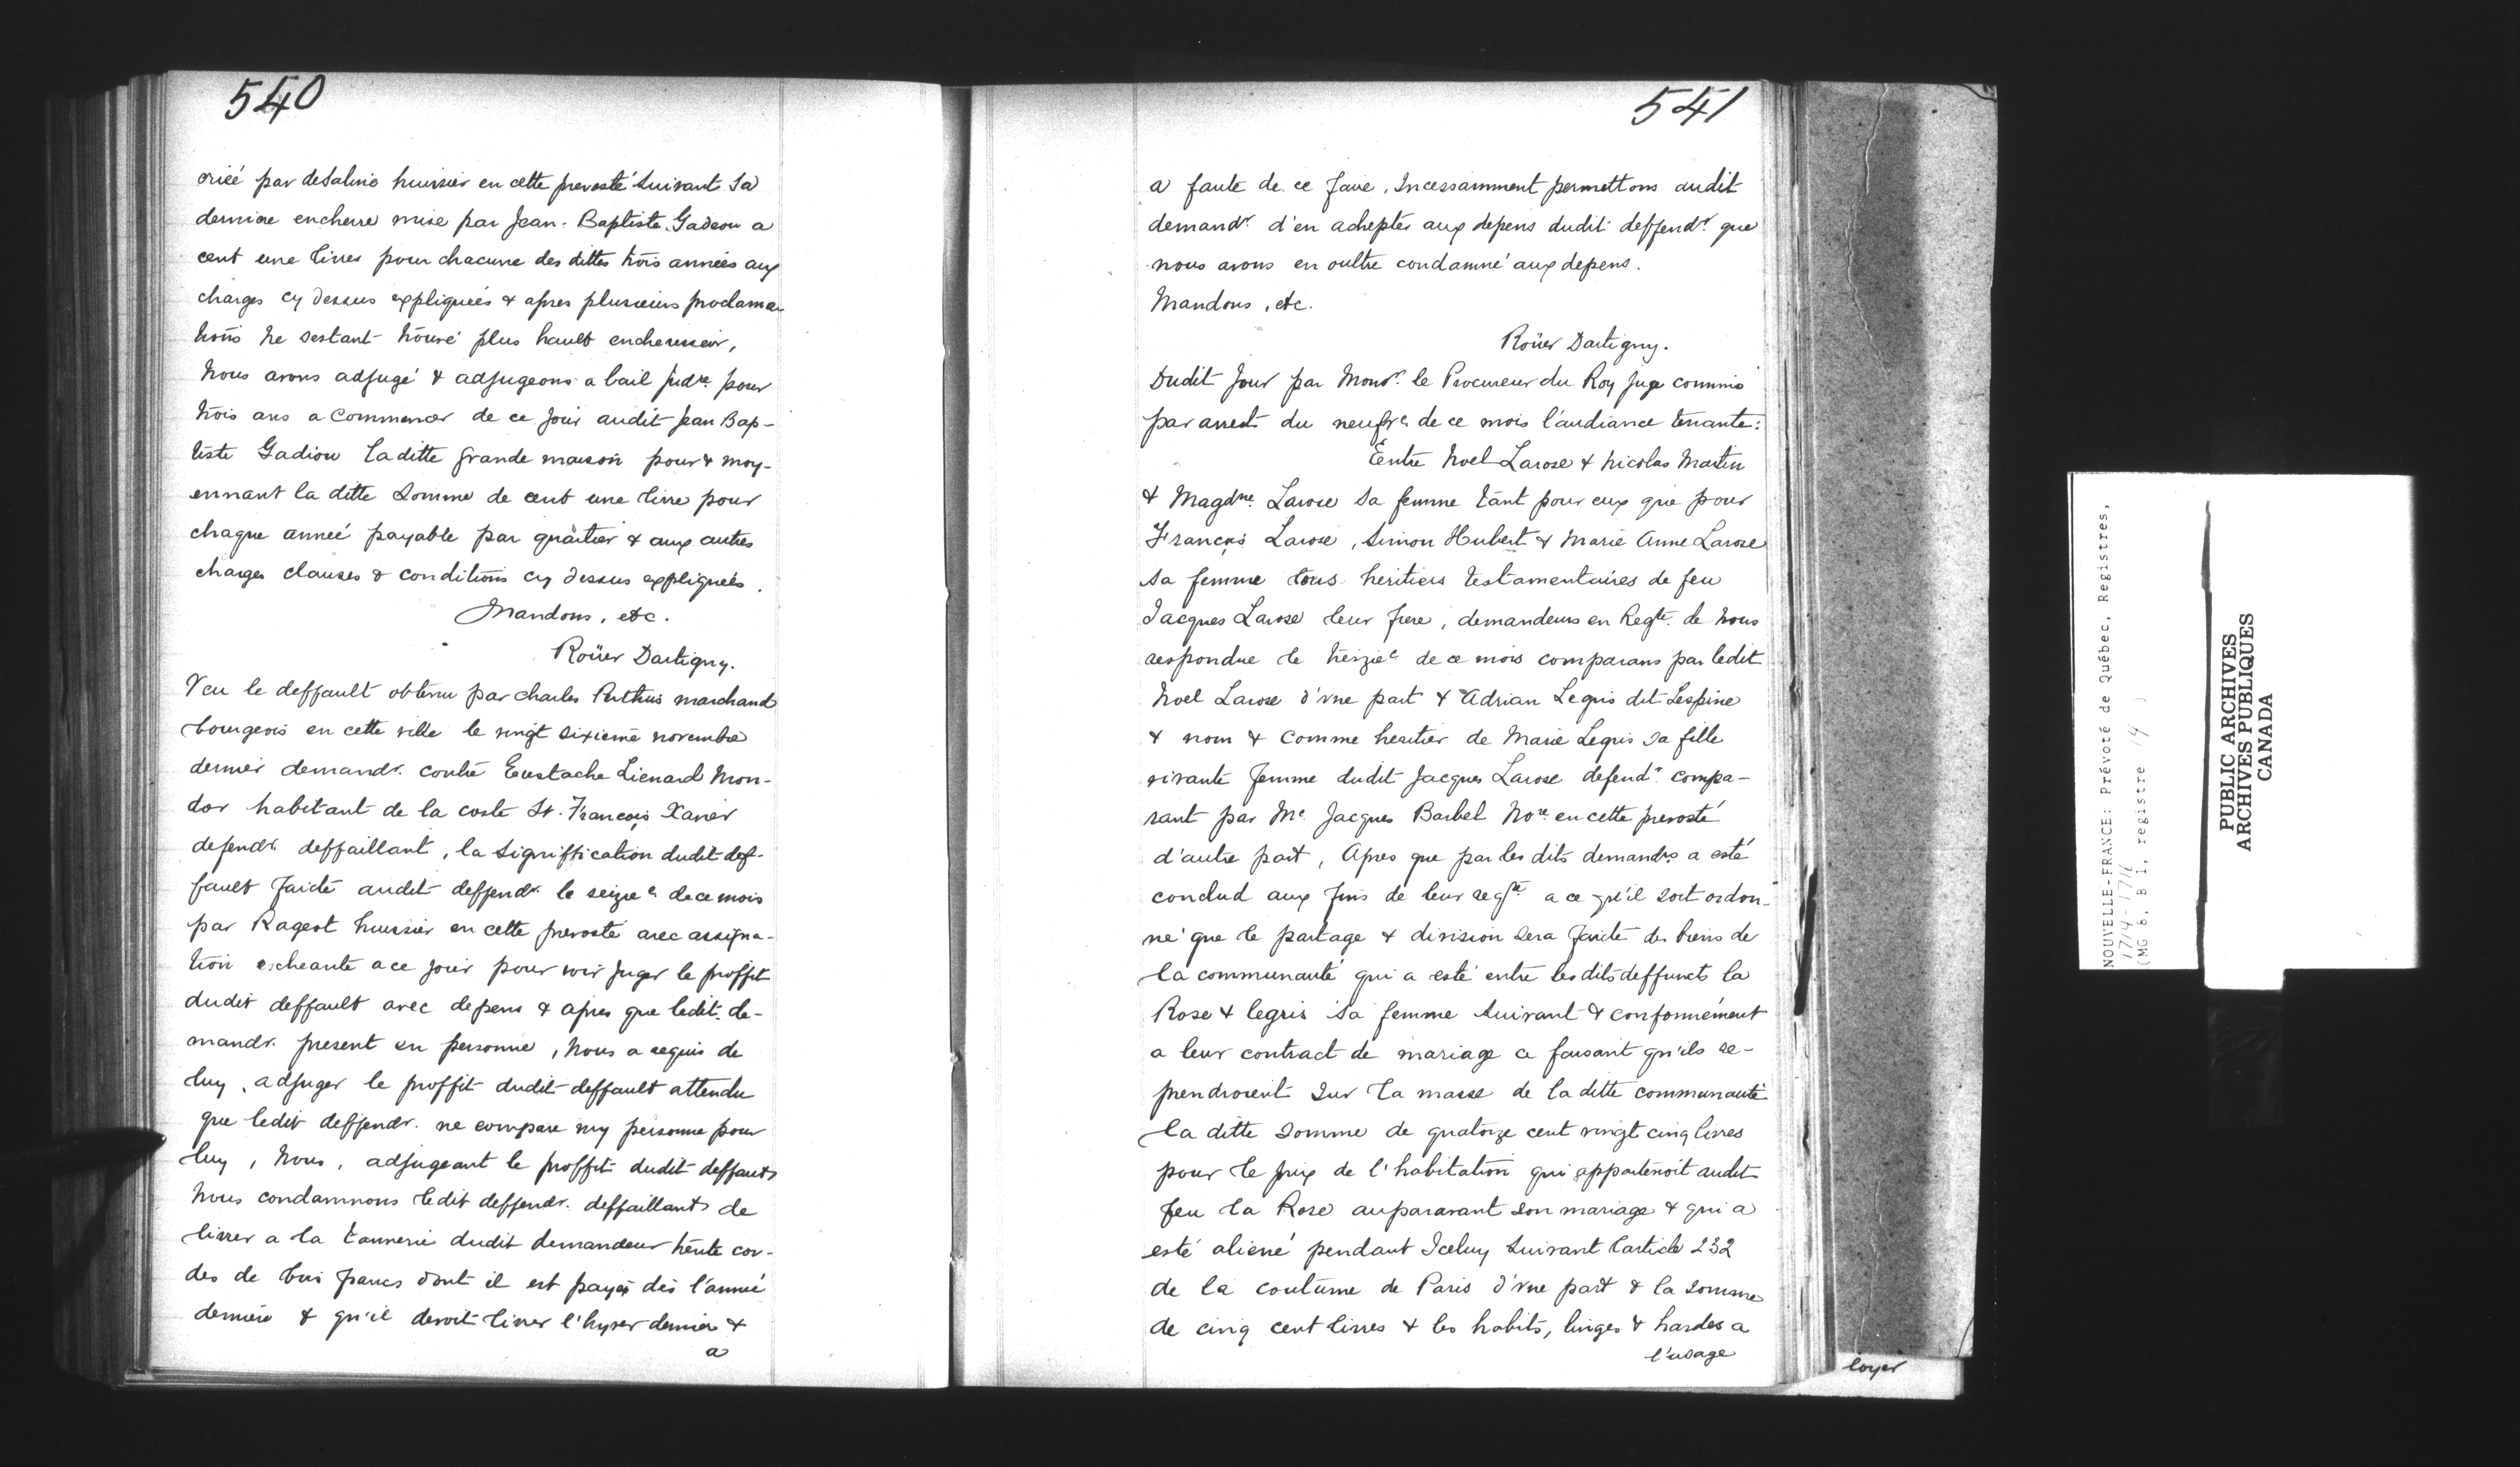 540
criée par deSaline huissier en cette prevosté suivant sa
derniere encherre mise par Jean-Baptiste Gadiou a
cent une livres pour chacune des dittes trois années aux
charges cy dessus expliqueés & apres plusieurs proclama-
tions ne sestant trouvé plus hault encherisseur,
Nous avons adjugé & adjugeons a bail judre. pour
trois ans a commencer de ce jour audit Jean Bap-
tiste Gadiou laditte grande maison pour & moy-
ennant la ditte somme de cent une livre pour
chaque anneé payable par quartier & aux autres
charges clauses & conditions cy dessus expliqueés.
Mandons, etc.
Roüer Dartigny.
Veu le deffault obtenu par charles Perthuis marchand
bourgeois en cette ville le vingt sixieme novembre
dernier demandr. contre Eustache Lienard Mon-
dor habitant de la coste St. François Xavier
defendr. deffaillant, la signiffication dudit def-
fault faicte audit deffendr. le seizie. de ce mois
par Rageot huissier en cette prevosté avec assigna-
tion escheante a ce jour pour voir juger le proffit
dudit deffault avec depens & apres que ledit de-
mandr. present en personne, Nous a requis de
luy, adjuger le proffit dudit deffault attendu
que ledit deffendr. ne compare ny personne pour
luy, Nous, adjugeant le proffit dudit deffault
Nous condamnons ledit deffendr. deffaillant de
livrer a la tannerie dudit demandeur trente cor-
des de bois francs dont il est payé dès l'année
derniere & qu'il devoit livrer l'hyver dernier &
a
541
a faute de ce faire, Incessamment permettons audit
demandr. d'en achepter aux depens dudit deffendr. que
nous avons en oultre condamné aux depens.
Mandons, etc.
Roüer Dartigny.
Dudit jour par Monsr. le Procureur du Roy juge commis
par arrest du neufve de ce mois l'audiance tenante:
Eentre Noel Larose & Nicolas Martin
& Magdne. Larose sa femme tant pour eux que pour
François Larose, Simon Hubert & Marie Anne Larose
sa femme tous heritiers testamentaires de feu
Jacques Larose leur frere, demandeurs en Reqte. de Nous
respondue le treizie. de ce mois comparans par ledit
Noel Larose d'vne part & Adrian Legris dit Lespine
& nom & comme heritier de Marie Legris sa fille
vivante femme dudit Jacques Larose defendr. compa-
rant par Me. Jacques Barbel Nore. en cette prevosté
d'autre part, Apres que par les dits demandrs a esté
conclud aux fins de leur reqte. a ce qu'il soit ordon-
né que le partage & division sera faicte des biens de
la communauté qui a esté entre lesdits deffunct la
Rose & legris sa femme suivant & conformément
a leur contract de mariage ce faisant qu'ils re-
prendroient sur la masse de laditte communauté
la ditte somme de quatorze cent vingt cinq livres
pour le prix de l'habitation qui appartenoit audit
feu la Rose auparavant son mariage & qui a
esté aliené pendant Iceluy suivant l'article 232
de la coutume de Paris d'vne part & la somme
de cinq cent livres & les habits, linges & hardes a
l'usage
loyer
NOUVELLE-FRANCE: Prévoté de Québec, Registres,
(MG 8, B 1, registre 14 )
PUBLIC ARCHIVES
ARCHIVES PUBLIQUES
CANADA